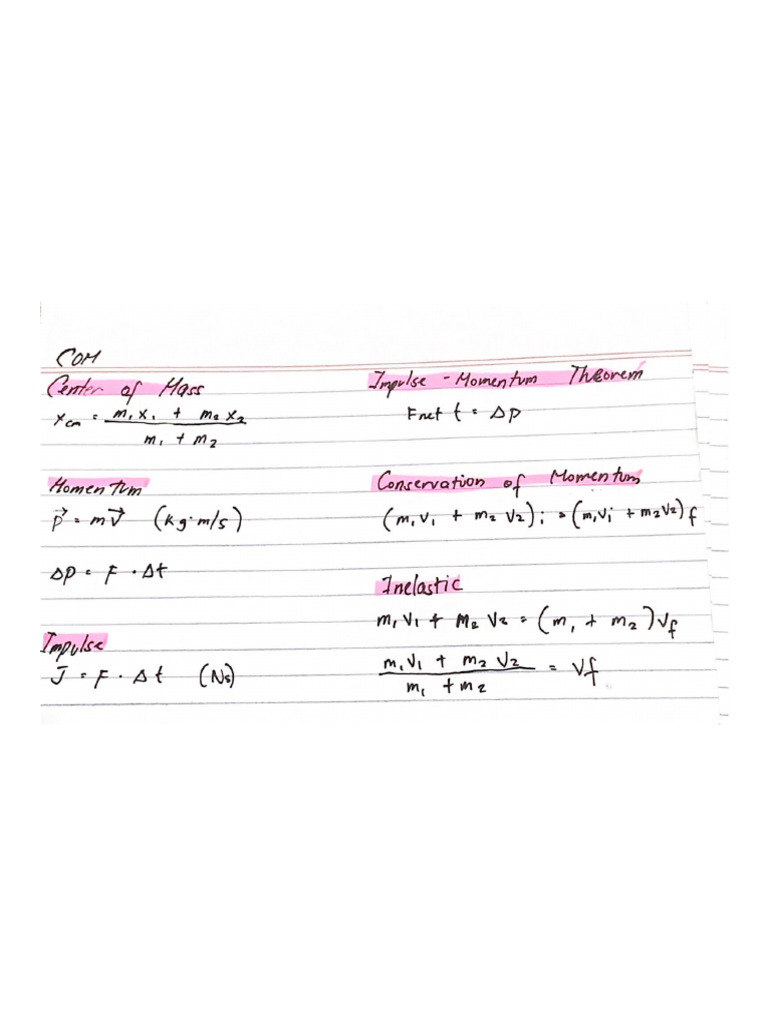 COM
Center of Mass
x_cm = (m₁x₁ + m₂x₂) / (m₁ + m₂)
Momentum
p⃗ = mv⃗ (kg·m/s)
Δp = F · Δt
Impulse
J = F · Δt (Ns)
Impulse - Momentum Theorem
Fnet t = Δp
Conservation of Momentum
(m₁v₁ + m₂v₂)i = (m₁v₁ + m₂v₂)f
Inelastic
m₁v₁ + m₂v₂ = (m₁ + m₂)vf
(m₁v₁ + m₂v₂) / (m₁ + m₂) = vf